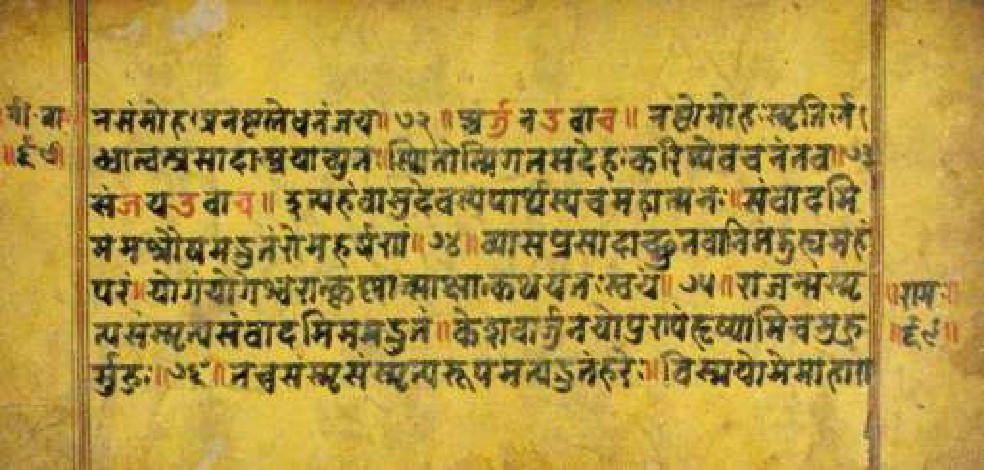 गी॰ वा
॥६९॥
नसंमोहः प्रनष्टस्तेधनंजय॥७२॥ अर्जुनउवाच॥ नष्टोमोहःस्मृतिर्ल
ब्धात्वत्प्रसादान्मयाच्युत॥स्थितोस्मिगतसंदेहःकरिष्येवचनंतव॥७३
संजयउवाच॥ इत्यहंवासुदेवस्यपार्थस्यचमहात्मनः॥संवादमि
ममश्रौषमद्भुतंरोमहर्षणं॥७४॥व्यासप्रसादाच्छ्रुतवानिमंगुह्यमहं
परं॥योगंयोगेश्वरात्कृष्णात्साक्षात्कथयतःस्वयं॥७५॥राजन्संस्मृ
त्यसंस्मृत्यसंवादमिममद्भुतं॥केशवार्जुनयोःपुण्यंहृष्यामिचमुहु
र्मुहुः॥७६॥तच्चसंस्मृत्यसंस्मृत्यरूपमत्यद्भुतंहरेः॥विस्मयोमेमहारा
॥राम॥
॥६९॥